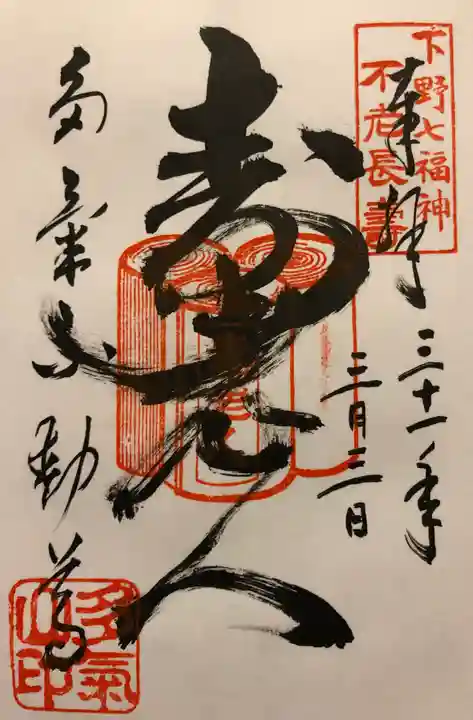 下野七福神
不老長壽
奉拝 三十一年
三月三日
寿老人
多氣不動尊
多氣
山印